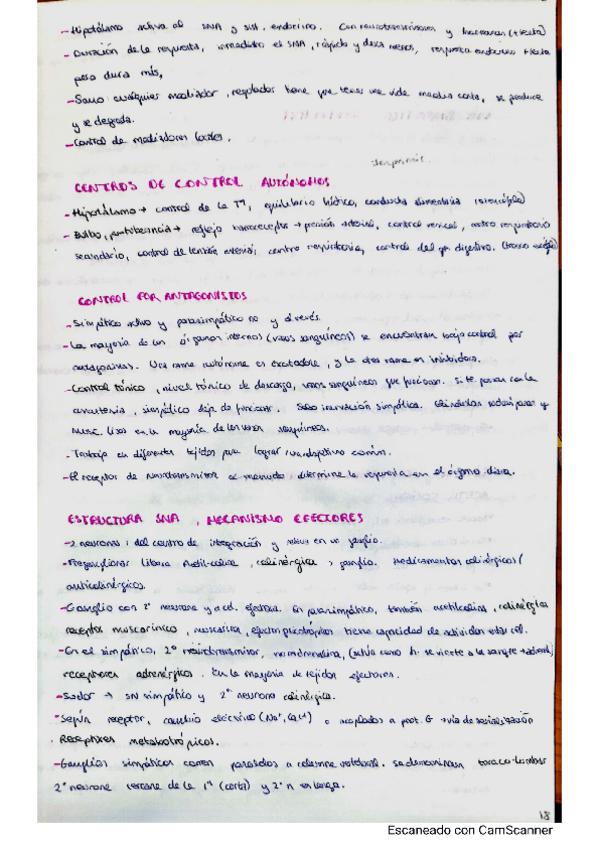 - Hipotálamo activa al SNA y sist. endocrino. Con neurotransmisores y hormonas (+lenta)
- Duración de la respuesta, inmediata el SNA, rápido y dura menos, respuesta endocrino +lenta
pero dura más,
- Como cualquier mediador, regulador tiene que tener una vida media corta, se produce
y se degrada.
- Control de mediadores locales.
CENTROS DE CONTROL AUTÓNOMOS
- Hipotálamo → control de la Tª, equilibrio hídrico, conducta alimentaria
- Bulbo, protuberancia → reflejo barorreceptor → presión arterial, control vesical, centro respiratorio
secundario, control de tensión arterial, centro respiratorio, control del ap. digestivo.
CONTROL POR ANTAGONISTAS
- Simpático activo y parasimpático no y al revés.
- La mayoría de los órganos internos (vasos sanguíneos) se encuentran bajo control por
antagonismo. Una rama autónoma es excitadora, y la otra rama es inhibidora.
- Control tónico, nivel tónico de descarga, vasos sanguíneos que funcionan. Si te pasan con la
anestesia, simpático deja de funcionar. Solo inervación simpática. Glándulas sudoríparas y
musc. lisos en la mayoría de los vasos sanguíneos.
- Trabaja en diferentes tejidos para lograr un objetivo común.
- El receptor de neurotransmisor a menudo determina la respuesta en el órgano diana.
ESTRUCTURA SNA, MECANISMO EFECTORES
- 2 neuronas: del centro de integración y relevo en un ganglio.
- Preganglionar libera Acetil-colina, colinérgica > ganglio. Medicamentos colinérgicos/
anticolinérgicos.
- Ganglio con 2ª neurona y a cél. efectora. En parasimpático, también acetilcolina, colinérgica
receptor muscarínico, muscarina, tiene capacidad de activar
- En el simpático, 2º neurotransmisor, noradrenalina, (actúa como h. se vierte a la sangre →
receptores adrenérgicos. En la mayoría de tejidos efectores.
- Sudor → SN simpático y 2ª neurona colinérgica.
- Según receptor, cambio eléctrico (Na+, Ca++) o acoplados a prot. G → vía de señalización
. Receptores metabotrópicos.
- Ganglios simpáticos corren paralelos a columna vertebral. Se denominan toraco-lumbar
2ª neurona cercana de la 1ª (corta) y 2ª n larga.
18
Escaneado con CamScanner